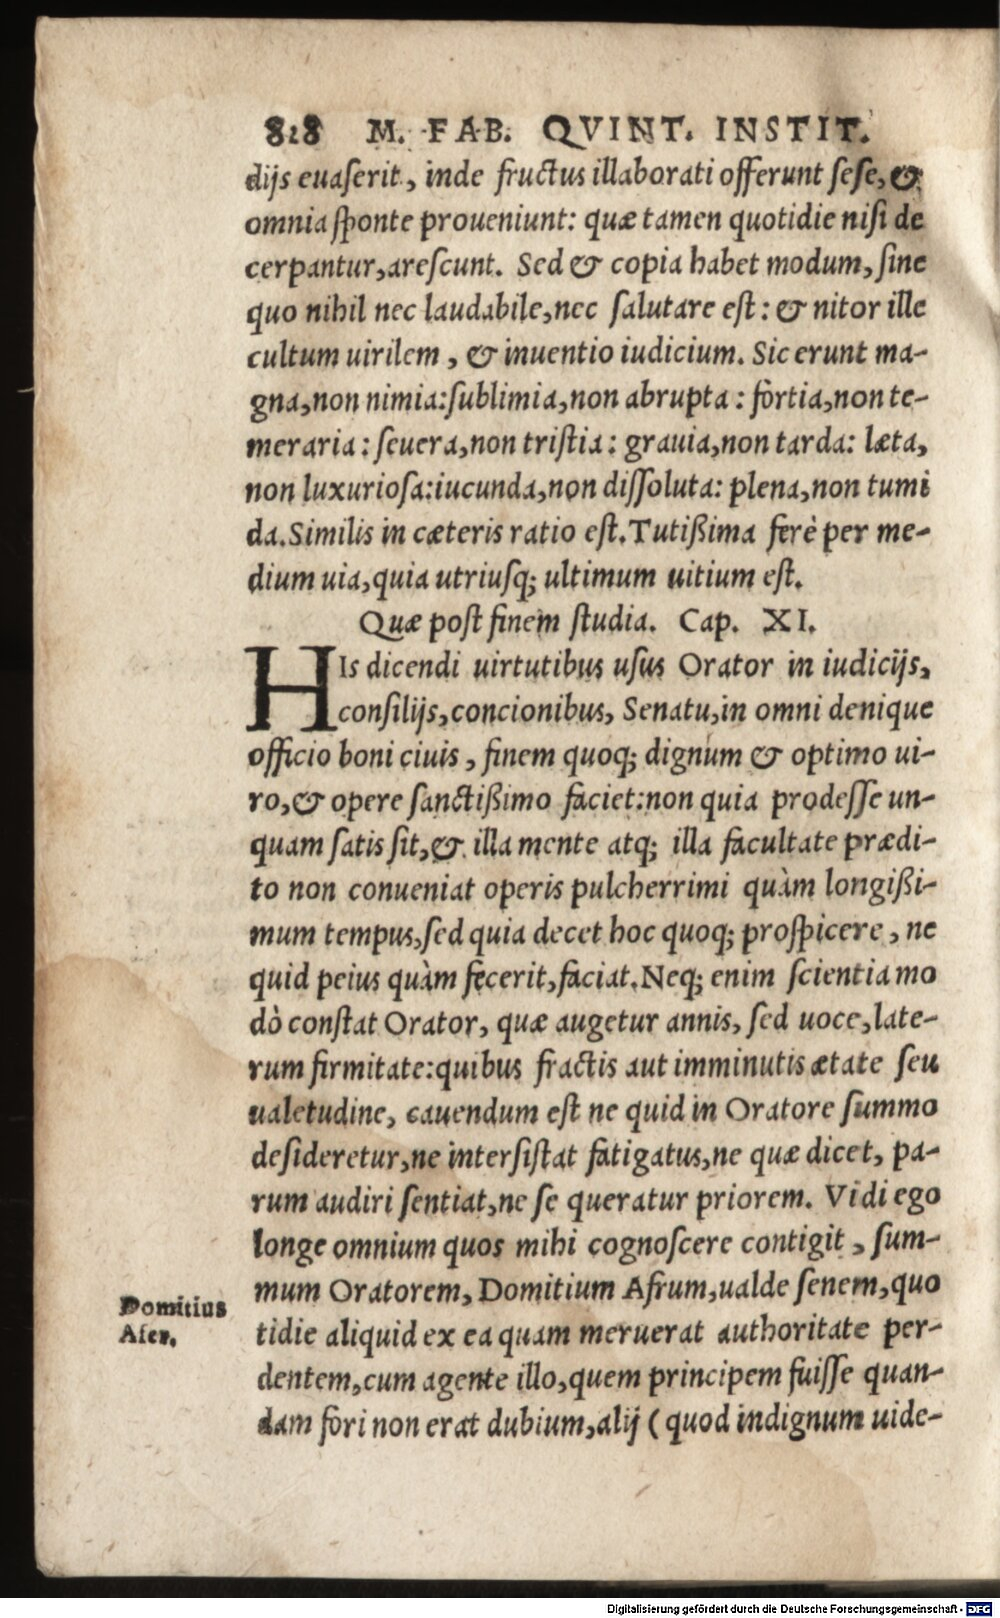 828 M. FAB. QVINT. INSTIT.
dijs euaserit, inde fructus illaborati offerunt sese, &
omnia sponte proueniunt: quæ tamen quotidie nisi de
cerpantur, arescunt. Sed & copia habet modum, sine
quo nihil nec laudabile, nec salutare est: & nitor ille
cultum uirilem, & inuentio iudicium. Sic erunt ma-
gna, non nimia: sublimia, non abrupta: fortia, non te-
meraria: seuera, non tristia: grauia, non tarda: læta,
non luxuriosa: iucunda, non dissoluta: plena, non tumi
da. Similis in cæteris ratio est. Tutißima ferè per me-
dium uia, quia utriusq; ultimum uitium est.
Quæ post finem studia. Cap. XI.
HIs dicendi uirtutibus usus Orator in iudicijs,
consilijs, concionibus, Senatu, in omni denique
officio boni ciuis, finem quoq; dignum & optimo ui-
ro, & opere sanctißimo faciet: non quia prodesse un-
quam satis sit, & illa mente atq; illa facultate prædi-
to non conueniat operis pulcherrimi quàm longißi-
mum tempus, sed quia decet hoc quoq; prospicere, ne
quid peius quàm fecerit, faciat. Neq; enim scientia mo
dò constat Orator, quæ augetur annis, sed uoce, late-
rum firmitate: quibus fractis aut imminutis ætate seu
ualetudine, cauendum est ne quid in Oratore summo
desideretur, ne intersistat fatigatus, ne quæ dicet, pa-
rum audiri sentiat, ne se queratur priorem. Vidi ego
longe omnium quos mihi cognoscere contigit, sum-
mum Oratorem, Domitium Afrum, ualde senem, quo
tidie aliquid ex ea quam meruerat authoritate per-
dentem, cum agente illo, quem principem fuisse quan-
dam fori non erat dubium, alij (quod indignum uide-
Domitius
Afer.
Digitalisierung gefördert durch die Deutsche Forschungsgemeinschaft - DFG